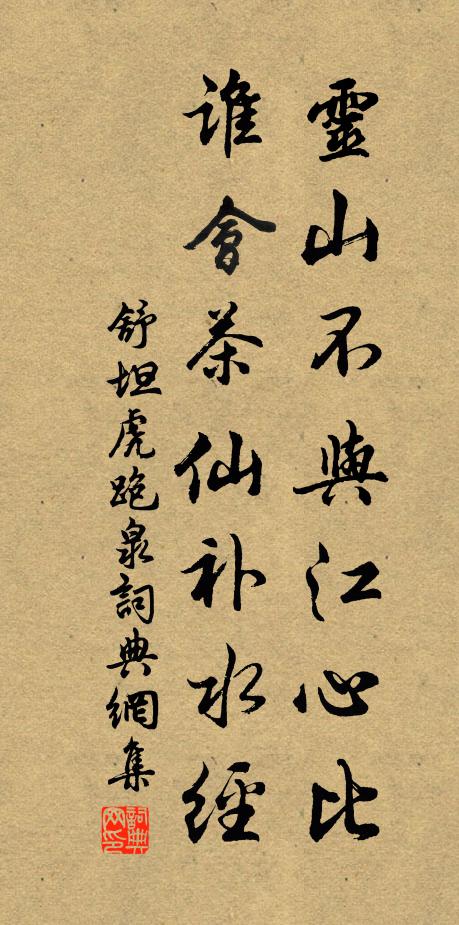 靈山不與江心比
誰會茶仙补水經
舒坦虎跑泉詞典網集
詞典网印